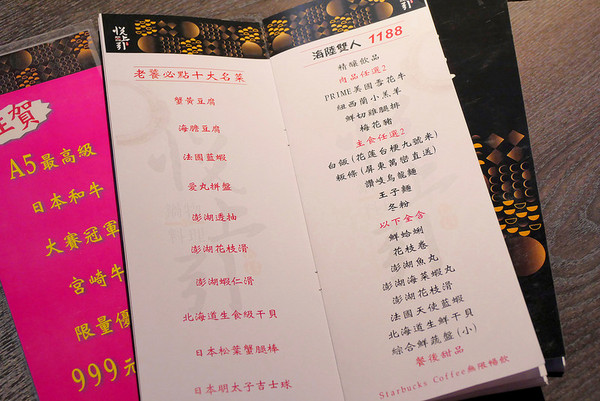 賀
A5最高級
日本和牛
大賽冠軍
宮崎牛
限量優
999元
老饕必點十大名菜
蟹黃豆腐
海膽豆腐
法國藍蝦
愛丸拼盤
澎湖透抽
澎湖花枝滑
澎湖蝦仁滑
北海道生食級干貝
日本松葉蟹腿棒
日本明太子吉士球
海陸雙人 1188
精釀飲品
肉品任選2
PRIME美國雪花牛
紐西蘭小羔羊
鮮切雞腿排
梅花豬
主食任選2
白飯(花蓮台梗九號米)
粄條(屏東萬巒直送)
讚岐烏龍麵
王子麵
冬粉
以下全含
鮮蛤蜊
花枝卷
澎湖魚丸
澎湖海菜蝦丸
澎湖花枝滑
法國天使藍蝦
北海道生鮮干貝
綜合鮮蔬盤(小)
餐後甜品
Starbucks Coffee無限暢飲